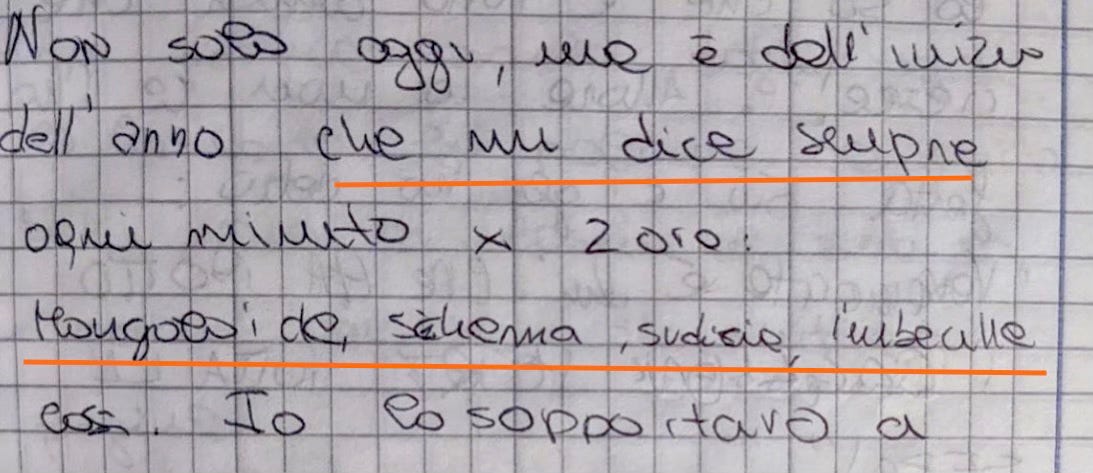 Non solo oggi, ma è dall'inizio
dell'anno che mi dice sempre
ogni minuto x 2 ore:
Mongoloide, scherma, sudicia, imbecille
così. Io lo sopportavo a